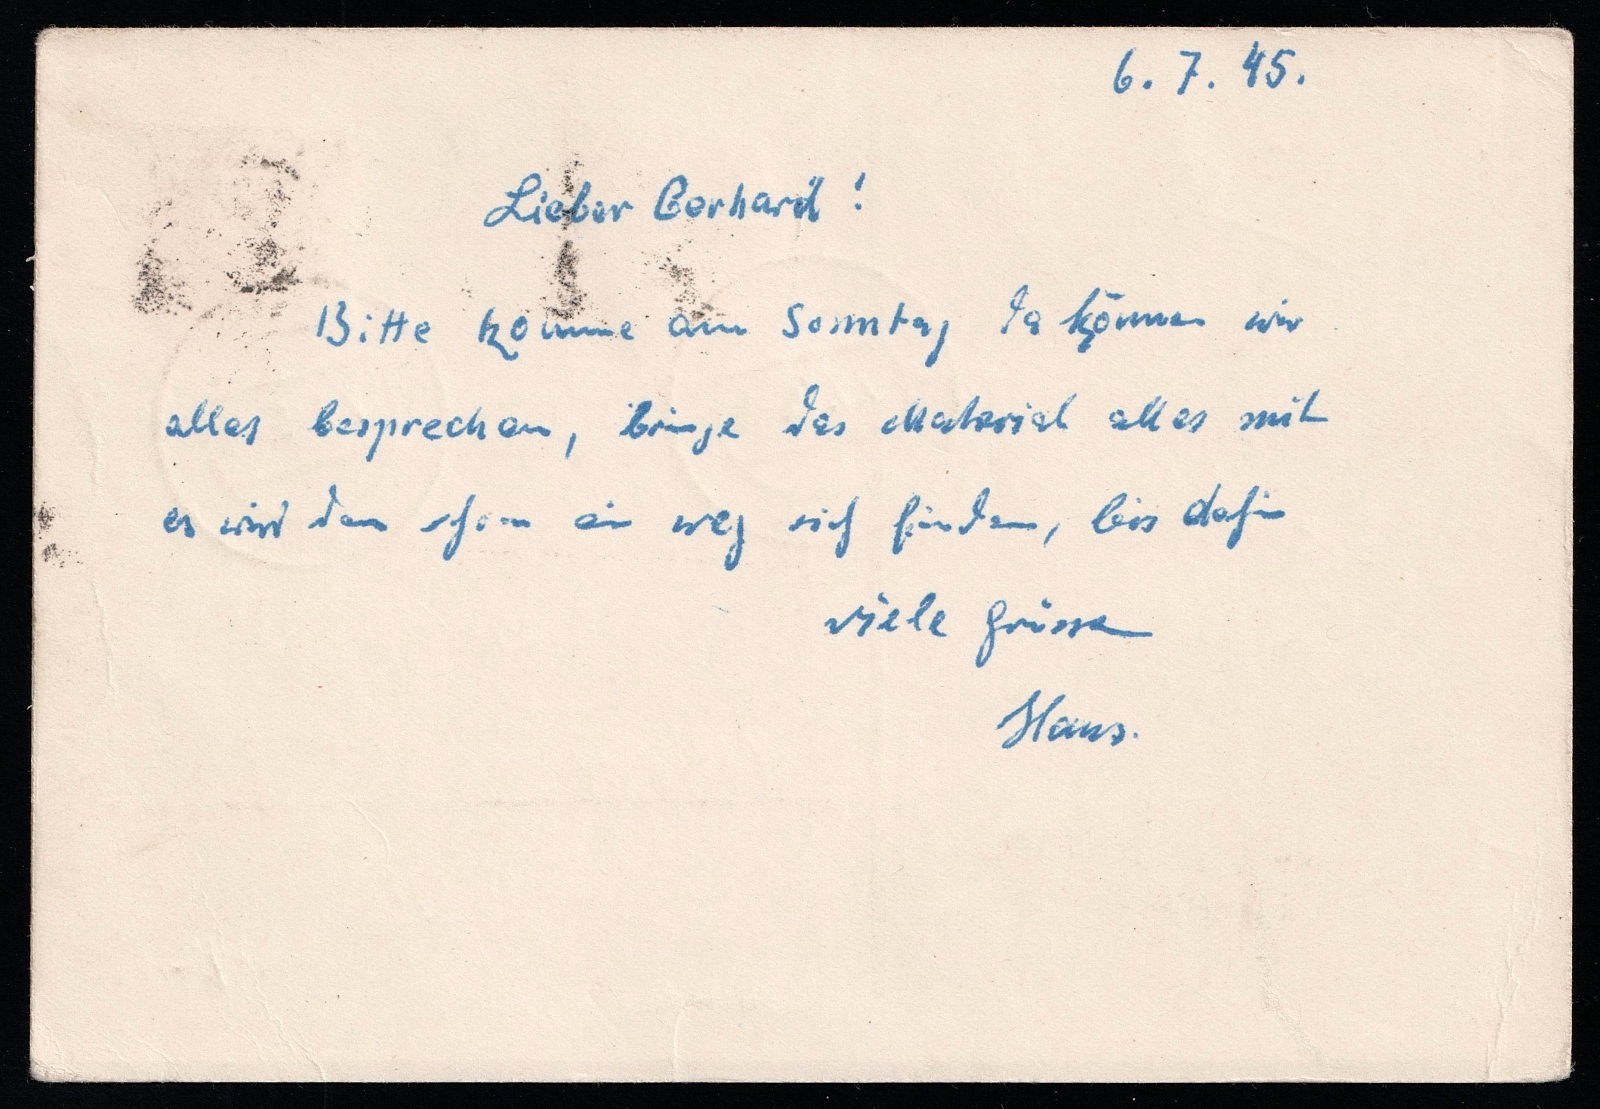 6. 7. 45.
Lieber Gerhard!
Bitte komme am Sonntag da können wir
alles besprechen, bringe das Material alles mit
es wird dan schon ein weg sich finden, bis dahin
viele Grüsse
Hans.